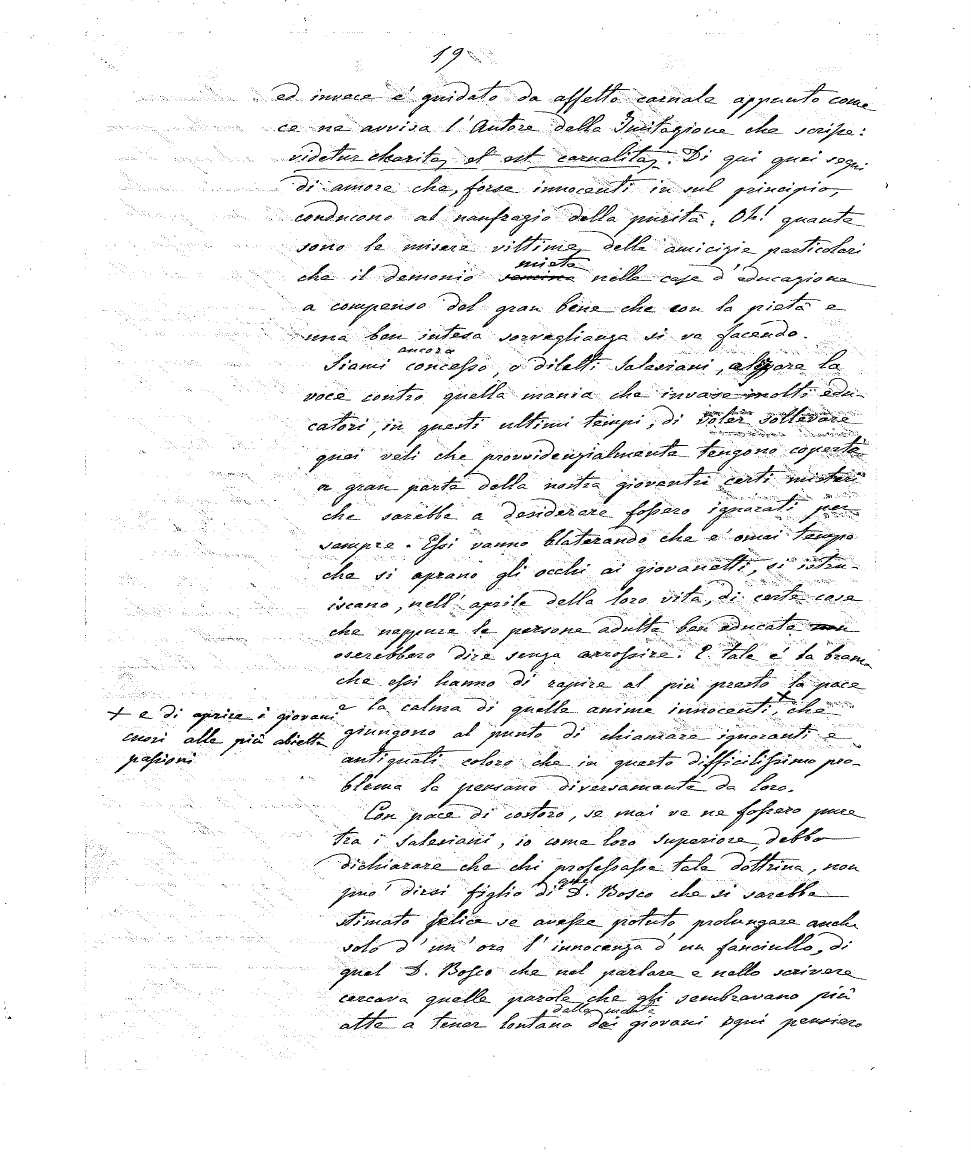 19
ed invece è guidato da affetto carnale appunto come
ce ne avvisa l'Autore della Imitazione che scrisse:
videtur charitas et est carnalitas. Di qui quei segni
di amore che, forse innocenti in sul principio,
conducono al naufragio della purità. Oh! quante
sono le misere vittime, delle amicizie particolari
miete
che il demonio semina nelle case d'educazione
a compenso del gran bene che con la pietà e
una ben intesa sorveglianza si va facendo.
ancora
Siami concesso, o diletti Salesiani, alzare la
voce contro quella mania che invase molti edu-
catori, in questi ultimi tempi, di voler sollevare
quei veli che provvidenzialmente tengono coperta
a gran parte della nostra gioventù certi misteri
che sarebbe a desiderare fossero ignorati per
sempre. Essi vanno blaterando che è omai tempo
che si aprano gli occhi ai giovanetti, si istru-
iscano, nell'aprile della loro vita, di certe cose
che neppure le persone adulte ben educate non
oserebbero dire senza arrossire. E tale è la brama
che essi hanno di rapire al più presto la pace
e la calma di quelle anime innocenti, + che
+ e di aprire i giovani
cuori alle più abiette
passioni
giungono al punto di chiamare ignoranti e
antiquati coloro che in questo difficilissimo pro-
blema la pensano diversamente da loro.
Con pace di costoro, se mai ve ne fossero pure
tra i Salesiani, io come loro superiore, debbo
dichiarare che chi professasse tale dottrina, non
quel
può dirsi figlio di D. Bosco che si sarebbe
stimato felice se avesse potuto prolungare anche
solo d'un'ora l'innocenza d'un fanciullo, di
quel D. Bosco che nel parlare e nello scrivere
cercava quelle parole che gli sembravano più
dalla mente
atte a tener lontano dei giovani ogni pensiero